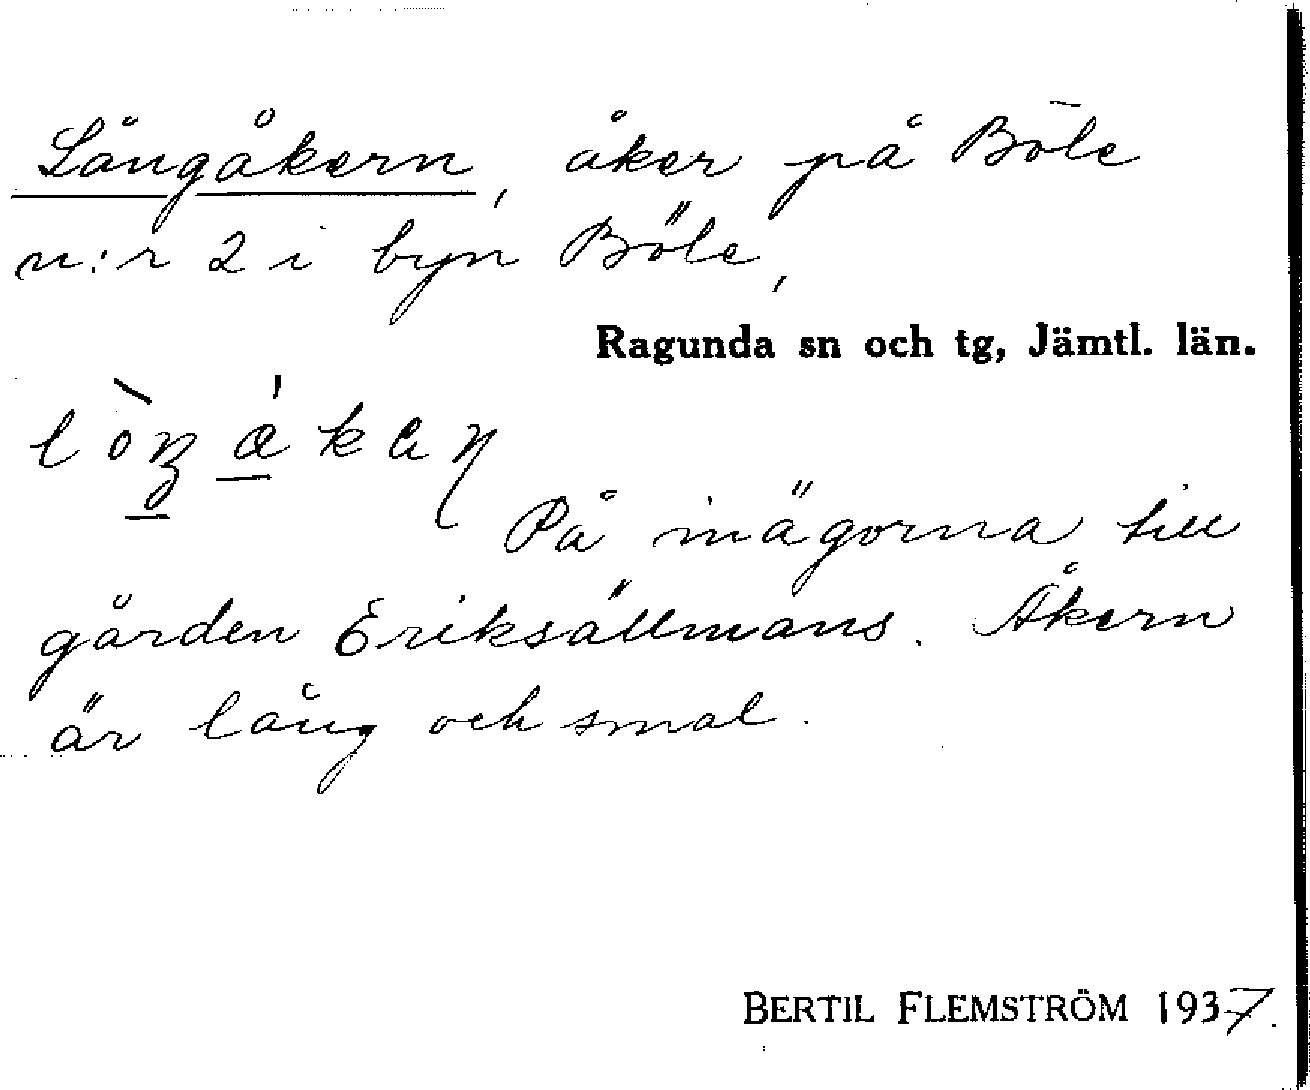 Långåkern, åker på Böle
n:r 2 i byn Böle,
Ragunda sn och tg, Jämtl. län.
På inägorna till
gården Eriksällmans. Åkern
är lång och smal.
BERTIL FLEMSTRÖM 1937.